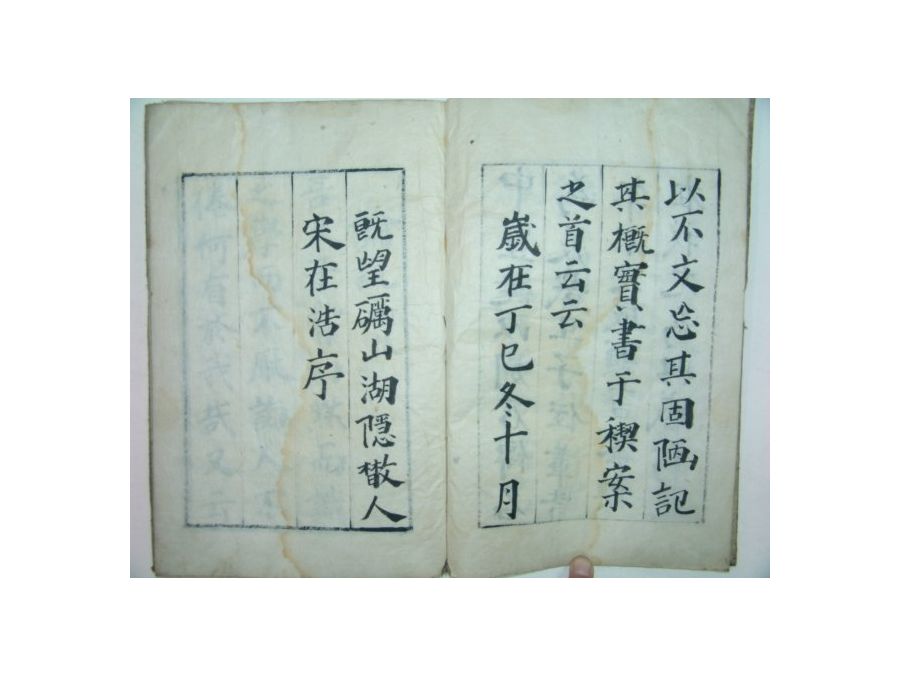 以不文忘其固陋記
其槪實書于稧案
之首云云
歲在丁巳冬十月
旣望礪山湖隱散人
宋在浩序